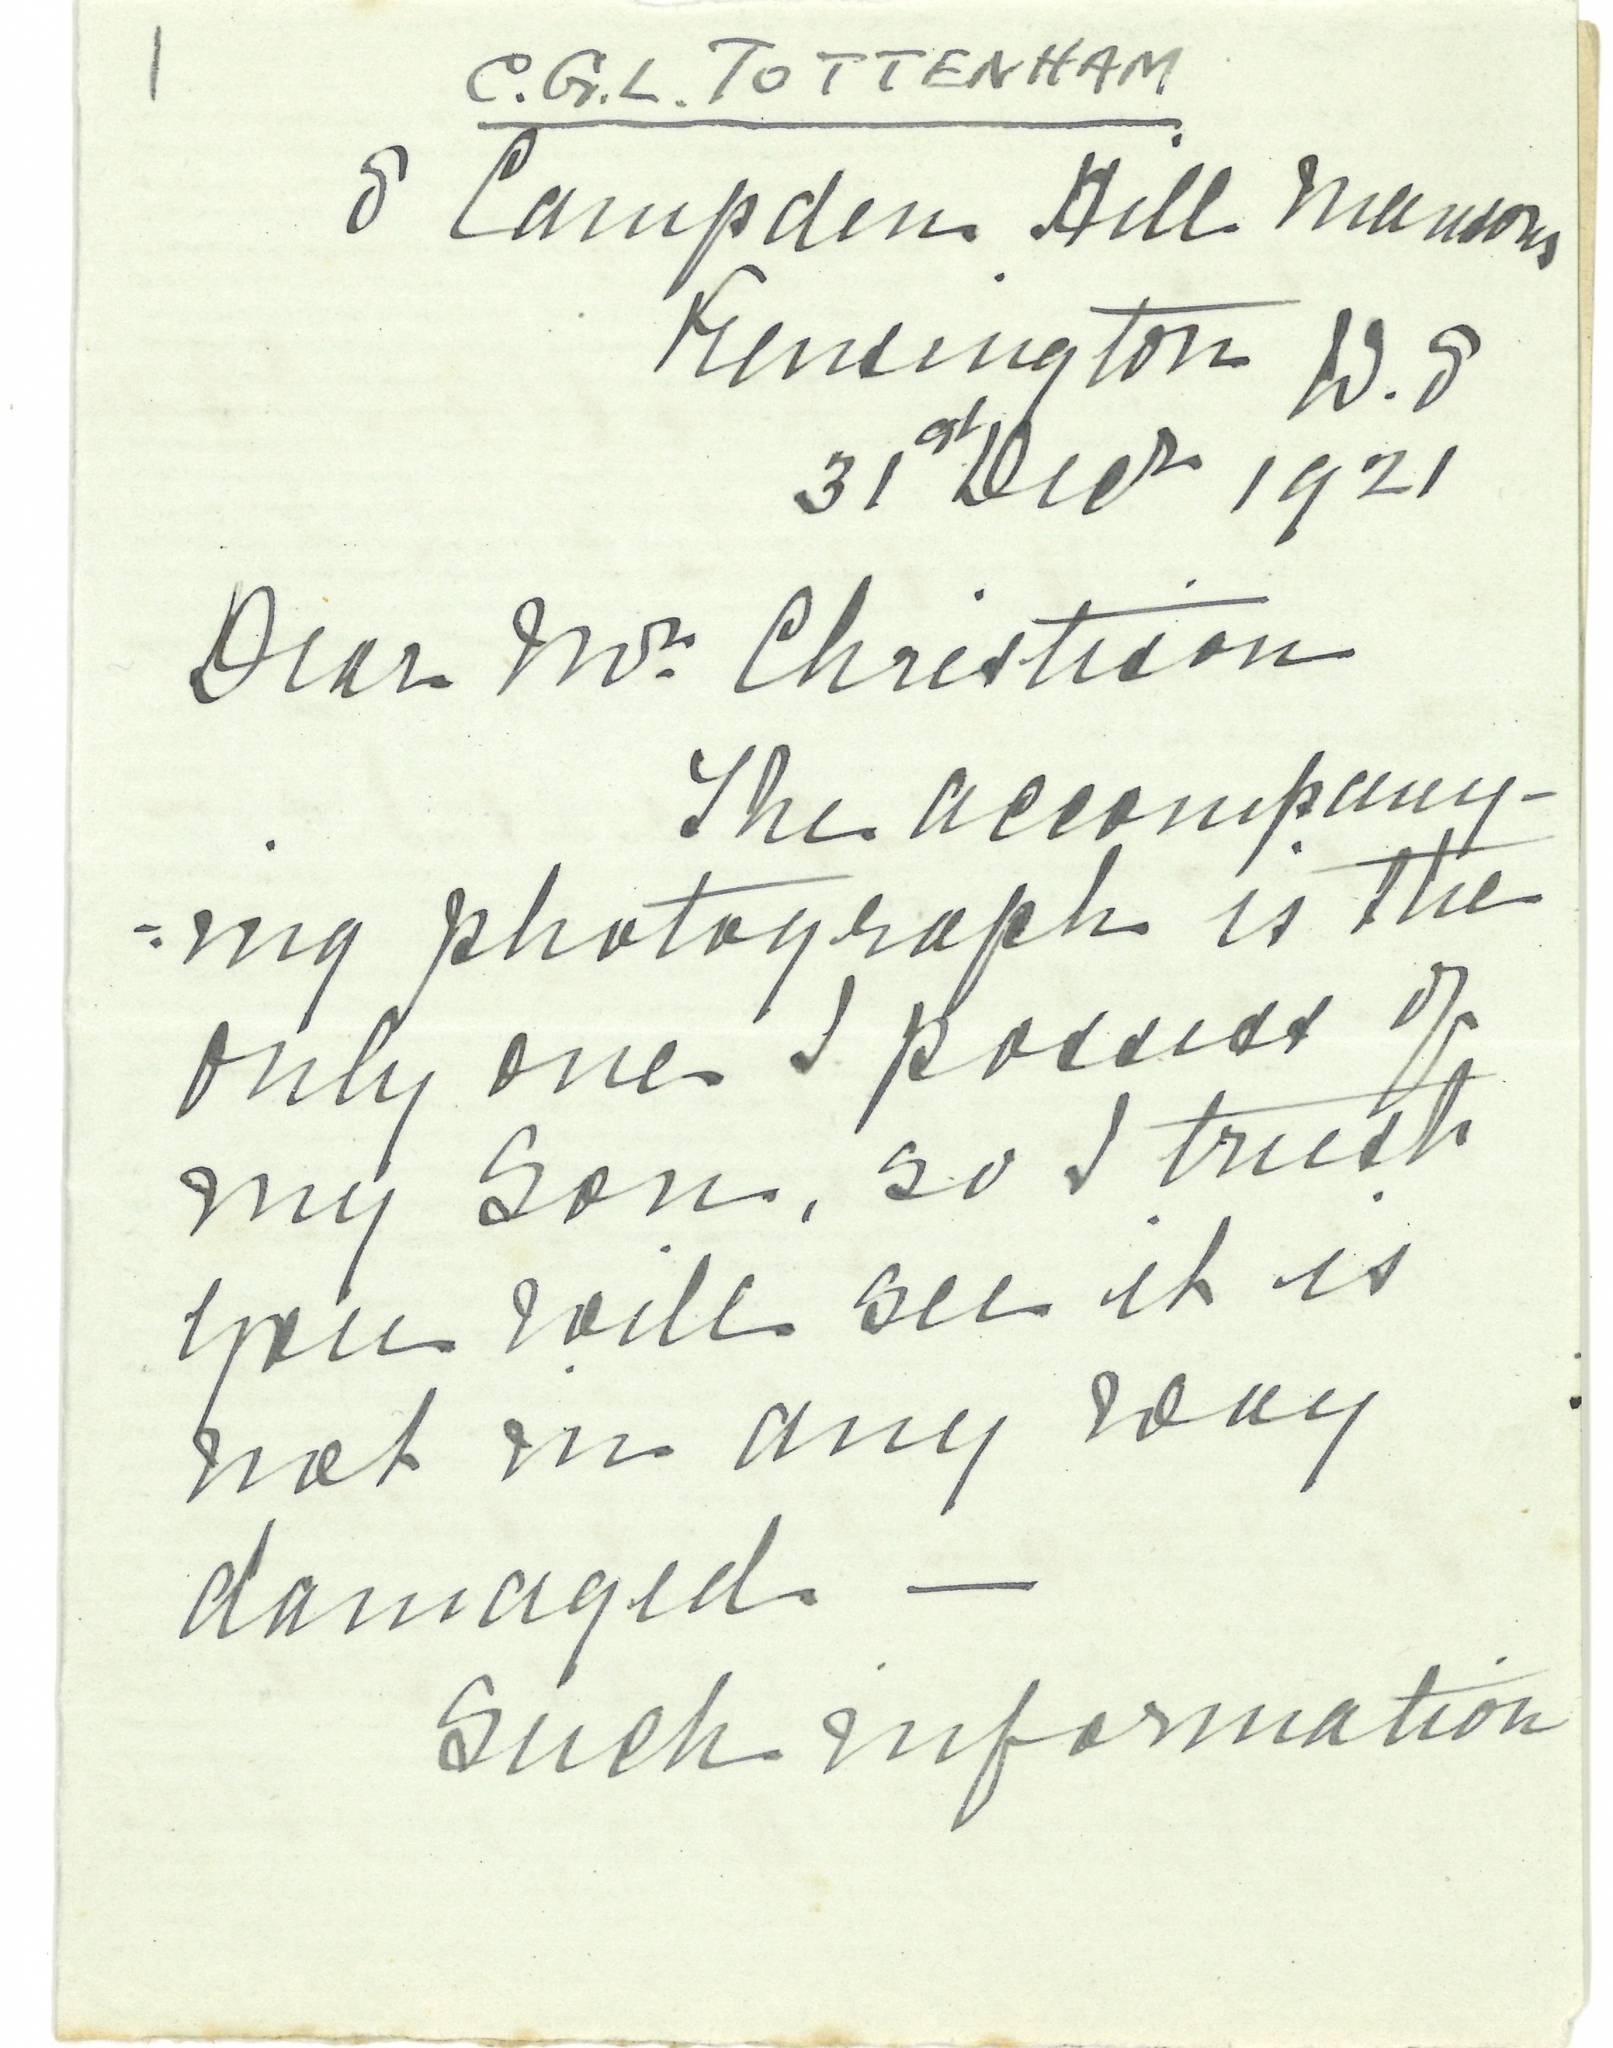 1
C.G.L. TOTTENHAM
8 Campden Hill Mansions
Kensington W.8
31st Decr 1921
Dear Mr. Christison
The accompany-
-ing photograph is the
only one I possess of
my Son, so I trust
you will see it is
not in any way
damaged —
Such information